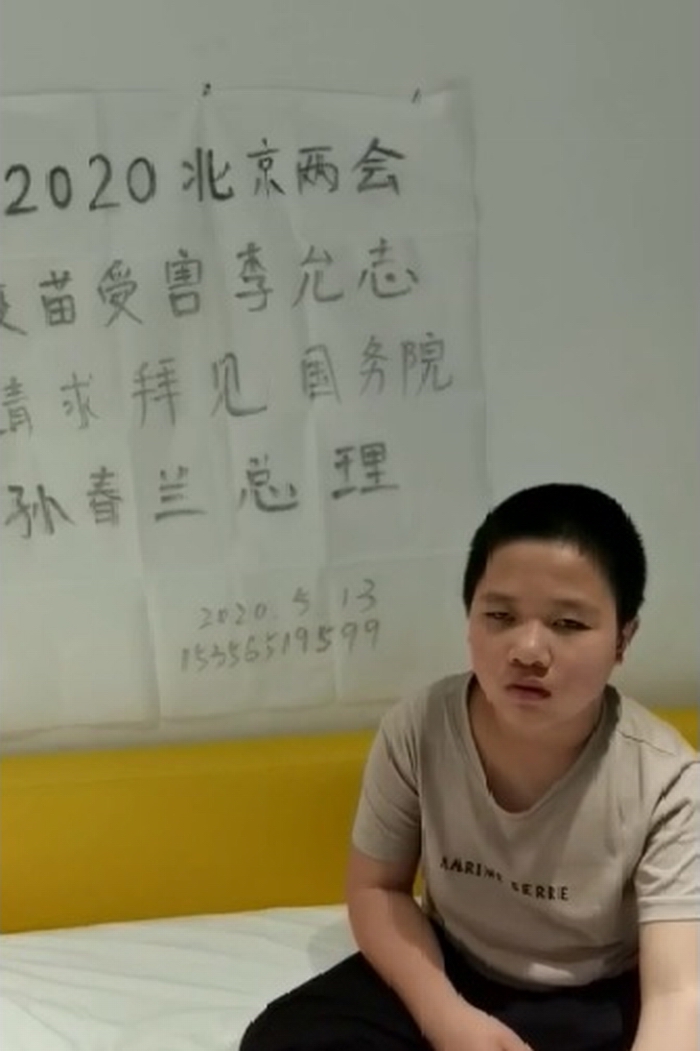 2020北京两会
疫苗受害李允志
请求拜见国务院
孙春兰总理
2020.5.13
15356519599